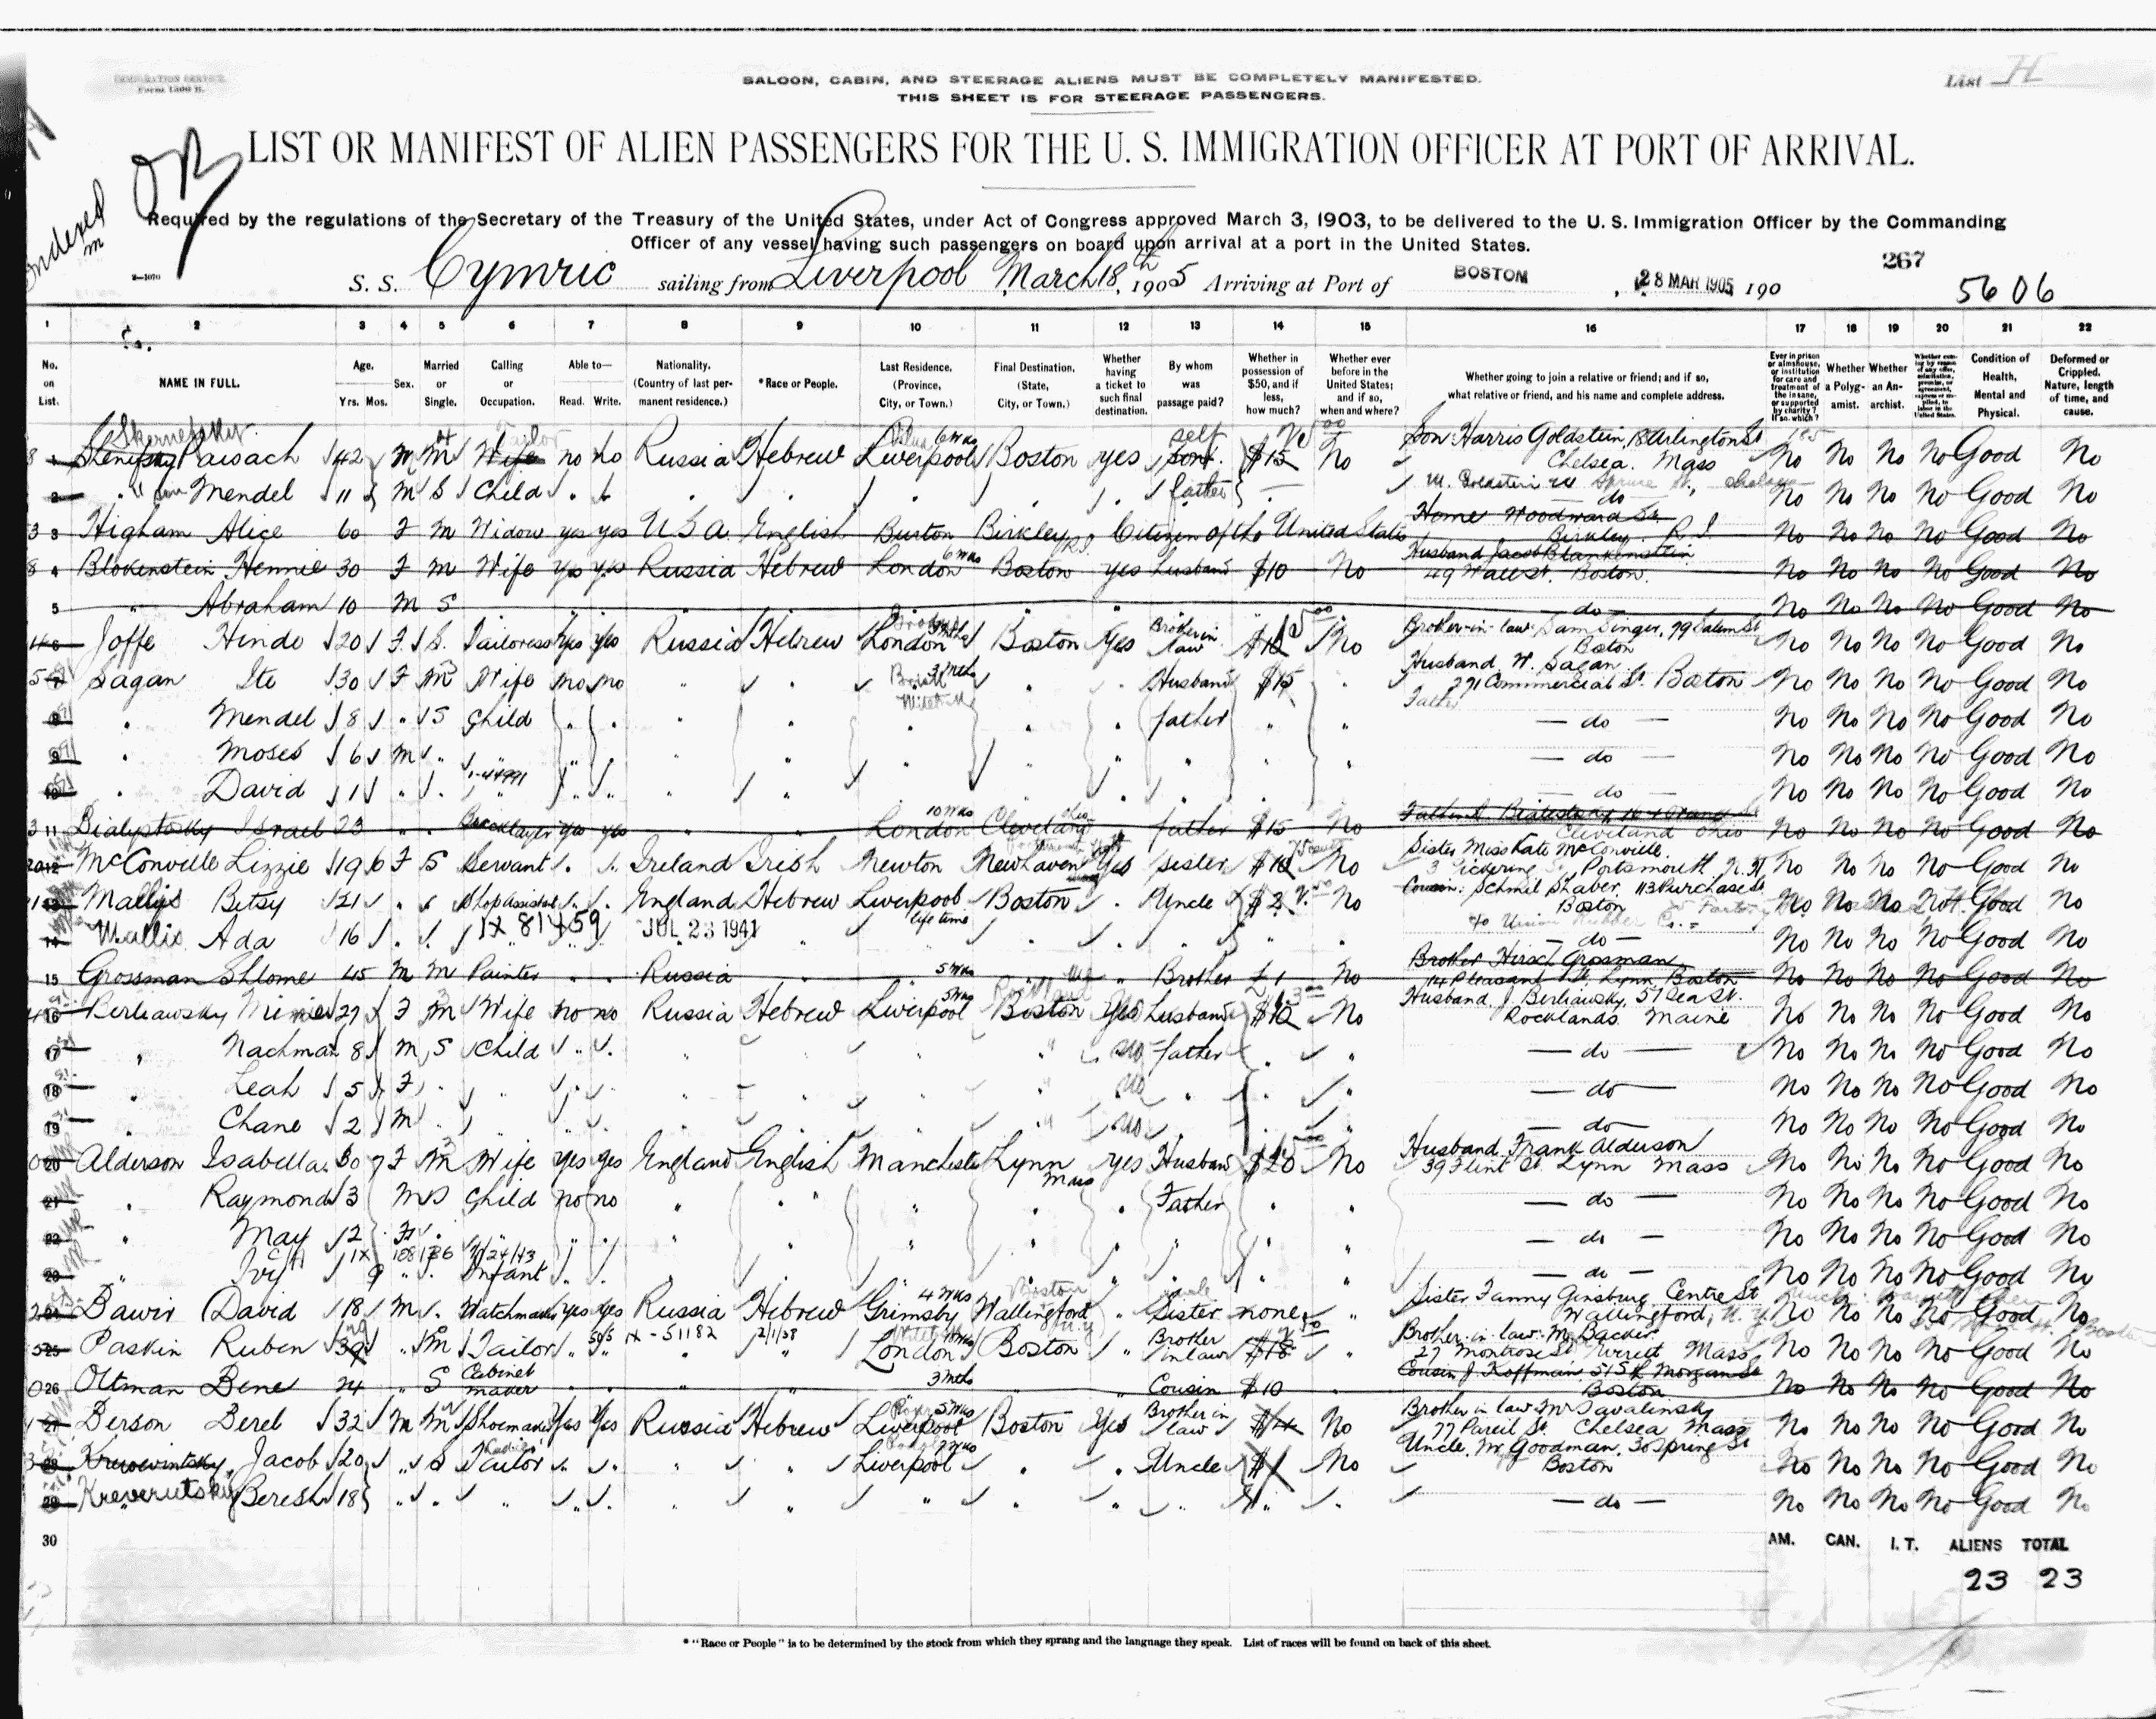 IMMIGRATION SERVICE
Form 1500 B.
SALOON, CABIN, AND STEERAGE ALIENS MUST BE COMPLETELY MANIFESTED.
THIS SHEET IS FOR STEERAGE PASSENGERS.
List H
LIST OR MANIFEST OF ALIEN PASSENGERS FOR THE U. S. IMMIGRATION OFFICER AT PORT OF ARRIVAL.
Required by the regulations of the Secretary of the Treasury of the United States, under Act of Congress approved March 3, 1903, to be delivered to the U. S. Immigration Officer by the Commanding
Officer of any vessel having such passengers on board upon arrival at a port in the United States.
Indexed
267
S. S. Cymric sailing from Liverpool March 18th, 1905 Arriving at Port of BOSTON, 28 MAR 1905 190 5606
1 2 3 4 5 6 7 8 9 10 11 12 13 14 15 16 17 18 19 20 21 22
No. on List.
NAME IN FULL.
Age. Yrs. Mos.
Sex.
Married or Single.
Calling or Occupation.
Able to— Read. Write.
Nationality. (Country of last permanent residence.)
*Race or People.
Last Residence, (Province, City, or Town.)
Final Destination, (State, City, or Town.)
Whether having a ticket to such final destination.
By whom was passage paid?
Whether in possession of $50, and if less, how much?
Whether ever before in the United States; and if so, when and where?
Whether going to join a relative or friend; and if so, what relative or friend, and his name and complete address.
Ever in prison or almshouse, or institution for care and treatment of the insane, or supported by charity? If so, which?
Whether a Polygamist.
Whether an Anarchist.
Condition of Health, Mental and Physical.
Deformed or Crippled. Nature, length of time, and cause.
1 Paisach 42 M M Wife no no Russia Hebrew Liverpool 6 wks Boston yes self $15 No Son Harris Goldstein, 18 Arlington St Chelsea. Mass No No No No Good No
2 " Mendel 11 M S Child father — do — No No No No Good No
3 Higham Alice 60 F M Widow yes yes U.S.A. English Burton Birkley R.I. Citizen of the United States Home Woodward St. Birkley R I No No No No Good No
4 Blokenstein Hennie 30 F M Wife yes yes Russia Hebrew London 6 wks Boston yes Husband $10 No Husband Jacob Blankenstein 49 Wall St. Boston. No No No No Good No
5 " Abraham 10 M S — do — No No No No Good No
6 Joffe Hinde 20 F S. Tailoress Yes Yes Russia Hebrew London Boston Yes Brother in law No Brother-in-law Sam Singer, 79 Salem St Boston No No No No Good No
7 Sagan Ite 30 F M Wife no no " " 3 mths Husband $15 Husband. W. Sagan. 271 Commercial St. Boston No No No No Good No
8 " Mendel 8 " S Child father — do — No No No No Good No
9 " Moses 6 M — do — No No No No Good No
10 " David 1 — do — No No No No Good No
11 Bialystosky Israel 23 Bricklayer yes yes London 10 wks Cleveland Ohio father $15 No Cleveland Ohio No No No No Good No
12 McConville Lizzie 19 F S Servant Ireland Irish Newton Newhaven Yes sister No Sister Miss Kate McConville. 3 Pickering St. Portsmouth. N. H No No No No Good No
13 Mallis Betsy 21 Shop assistant England Hebrew Liverpool life time Boston Uncle $2 No Cousin: Schmil Shaber, 113 Purchase St Boston No No No Good No
14 Mallis Ada 16 1x 81459 JUL 23 1941 — do — No No No No Good No
15 Grossman Shlome 45 M M Painter Russia 5 wks Brother £1 No Brother Hirsch Grossman 14 Pleasant St. Lynn Boston No No No No Good No
16 Berliawsky Minnie 27 F M Wife no no Russia Hebrew Liverpool 5 wks Boston Yes Husband No Husband J. Berliawsky, 57 Sea St. Rocklands. Maine No No No No Good No
17 " Nachman 8 M S Child father — do — No No No No Good No
18 " Leah 5 F — do — No No No No Good No
19 " Chane 2 M — do — No No No No Good No
20 Alderson Isabella 30 F M Wife yes yes England English Manchester Lynn Mass yes Husband No Husband Frank Alderson 39 Flint St. Lynn Mass No No No No Good No
21 " Raymond 3 M S Child no no Father — do — No No No No Good No
22 " May 2 F — do — No No No No Good No
23 " Ivy 9 Infant — do — No No No No Good No
24 Bawir David 18 M Watchmaker yes yes Russia Hebrew Grimsby 4 wks Wallingford Sister none Sister Fanny Ginsburg Centre St Wallingford, No No No No Good No
25 Paskin Ruben M Tailor London Boston Brother in law $18 Brother-in-law M. Backer 27 Montrose St Everett Mass No No No No Good No
26 Oltman Bene 24 " S Cabinet maker 3 mths Cousin $10 Cousin J. Koffman 515 Morgan St Boston No No No No Good No
27 Berson Berel 32 M M Shoemaker Yes Yes Russia Hebrew Liverpool 5 wks Boston Yes Brother in law $4 No Brother in law M Savalinsky 77 Pareil St. Chelsea Mass No No No No Good No
28 Jacob 20 S Tailor Liverpool Uncle $1 No Uncle. M. Goodman, 30 Spring St Boston No No No No Good No
29 Beresh 18 — do — No No No No Good No
30
AM. CAN. I. T. ALIENS TOTAL
23 23
* "Race or People" is to be determined by the stock from which they sprang and the language they speak. List of races will be found on back of this sheet.